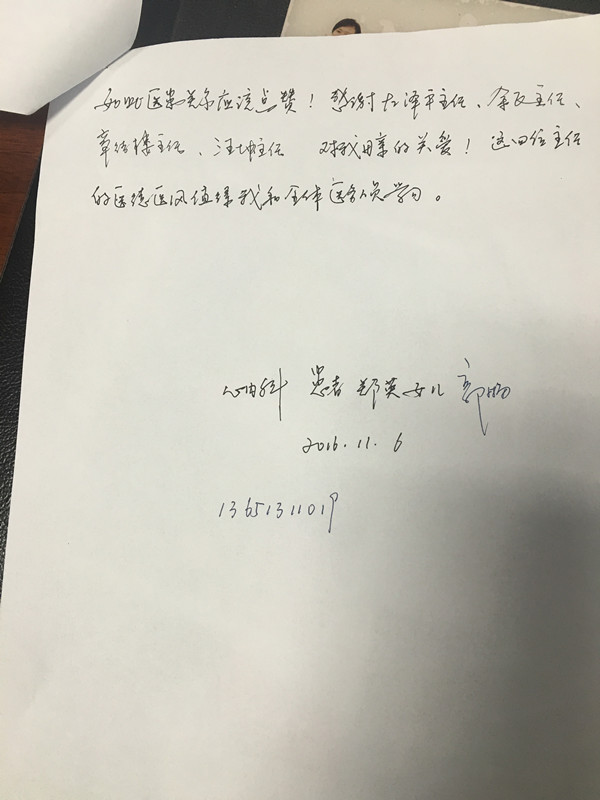 如此医患关系应该点赞！感谢左泽平主任、余辰主任、
章绩樓主任、汪坤主任 对我母亲的关爱！这四位主任
的医德医风值得我和全体医务人员学习。
心内科 患者 郑英女儿 郭
2016.11.6
13651311019